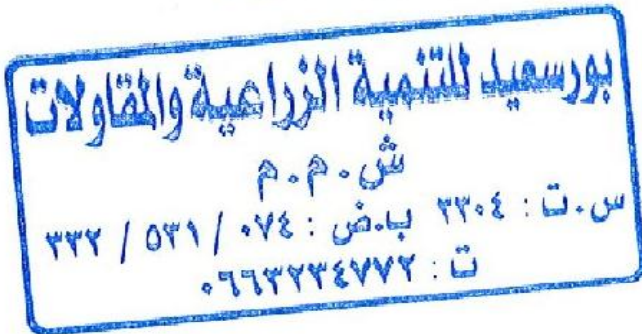 بورسعيد للتنمية الزراعية والمقاولات
ش.م.م
س.ت : ٣٣٠٤ ب.ض : ٠٧٤ / ٥٣١ / ٣٣٢
ت : ٠٦٦٣٢٣٤٧٧٢